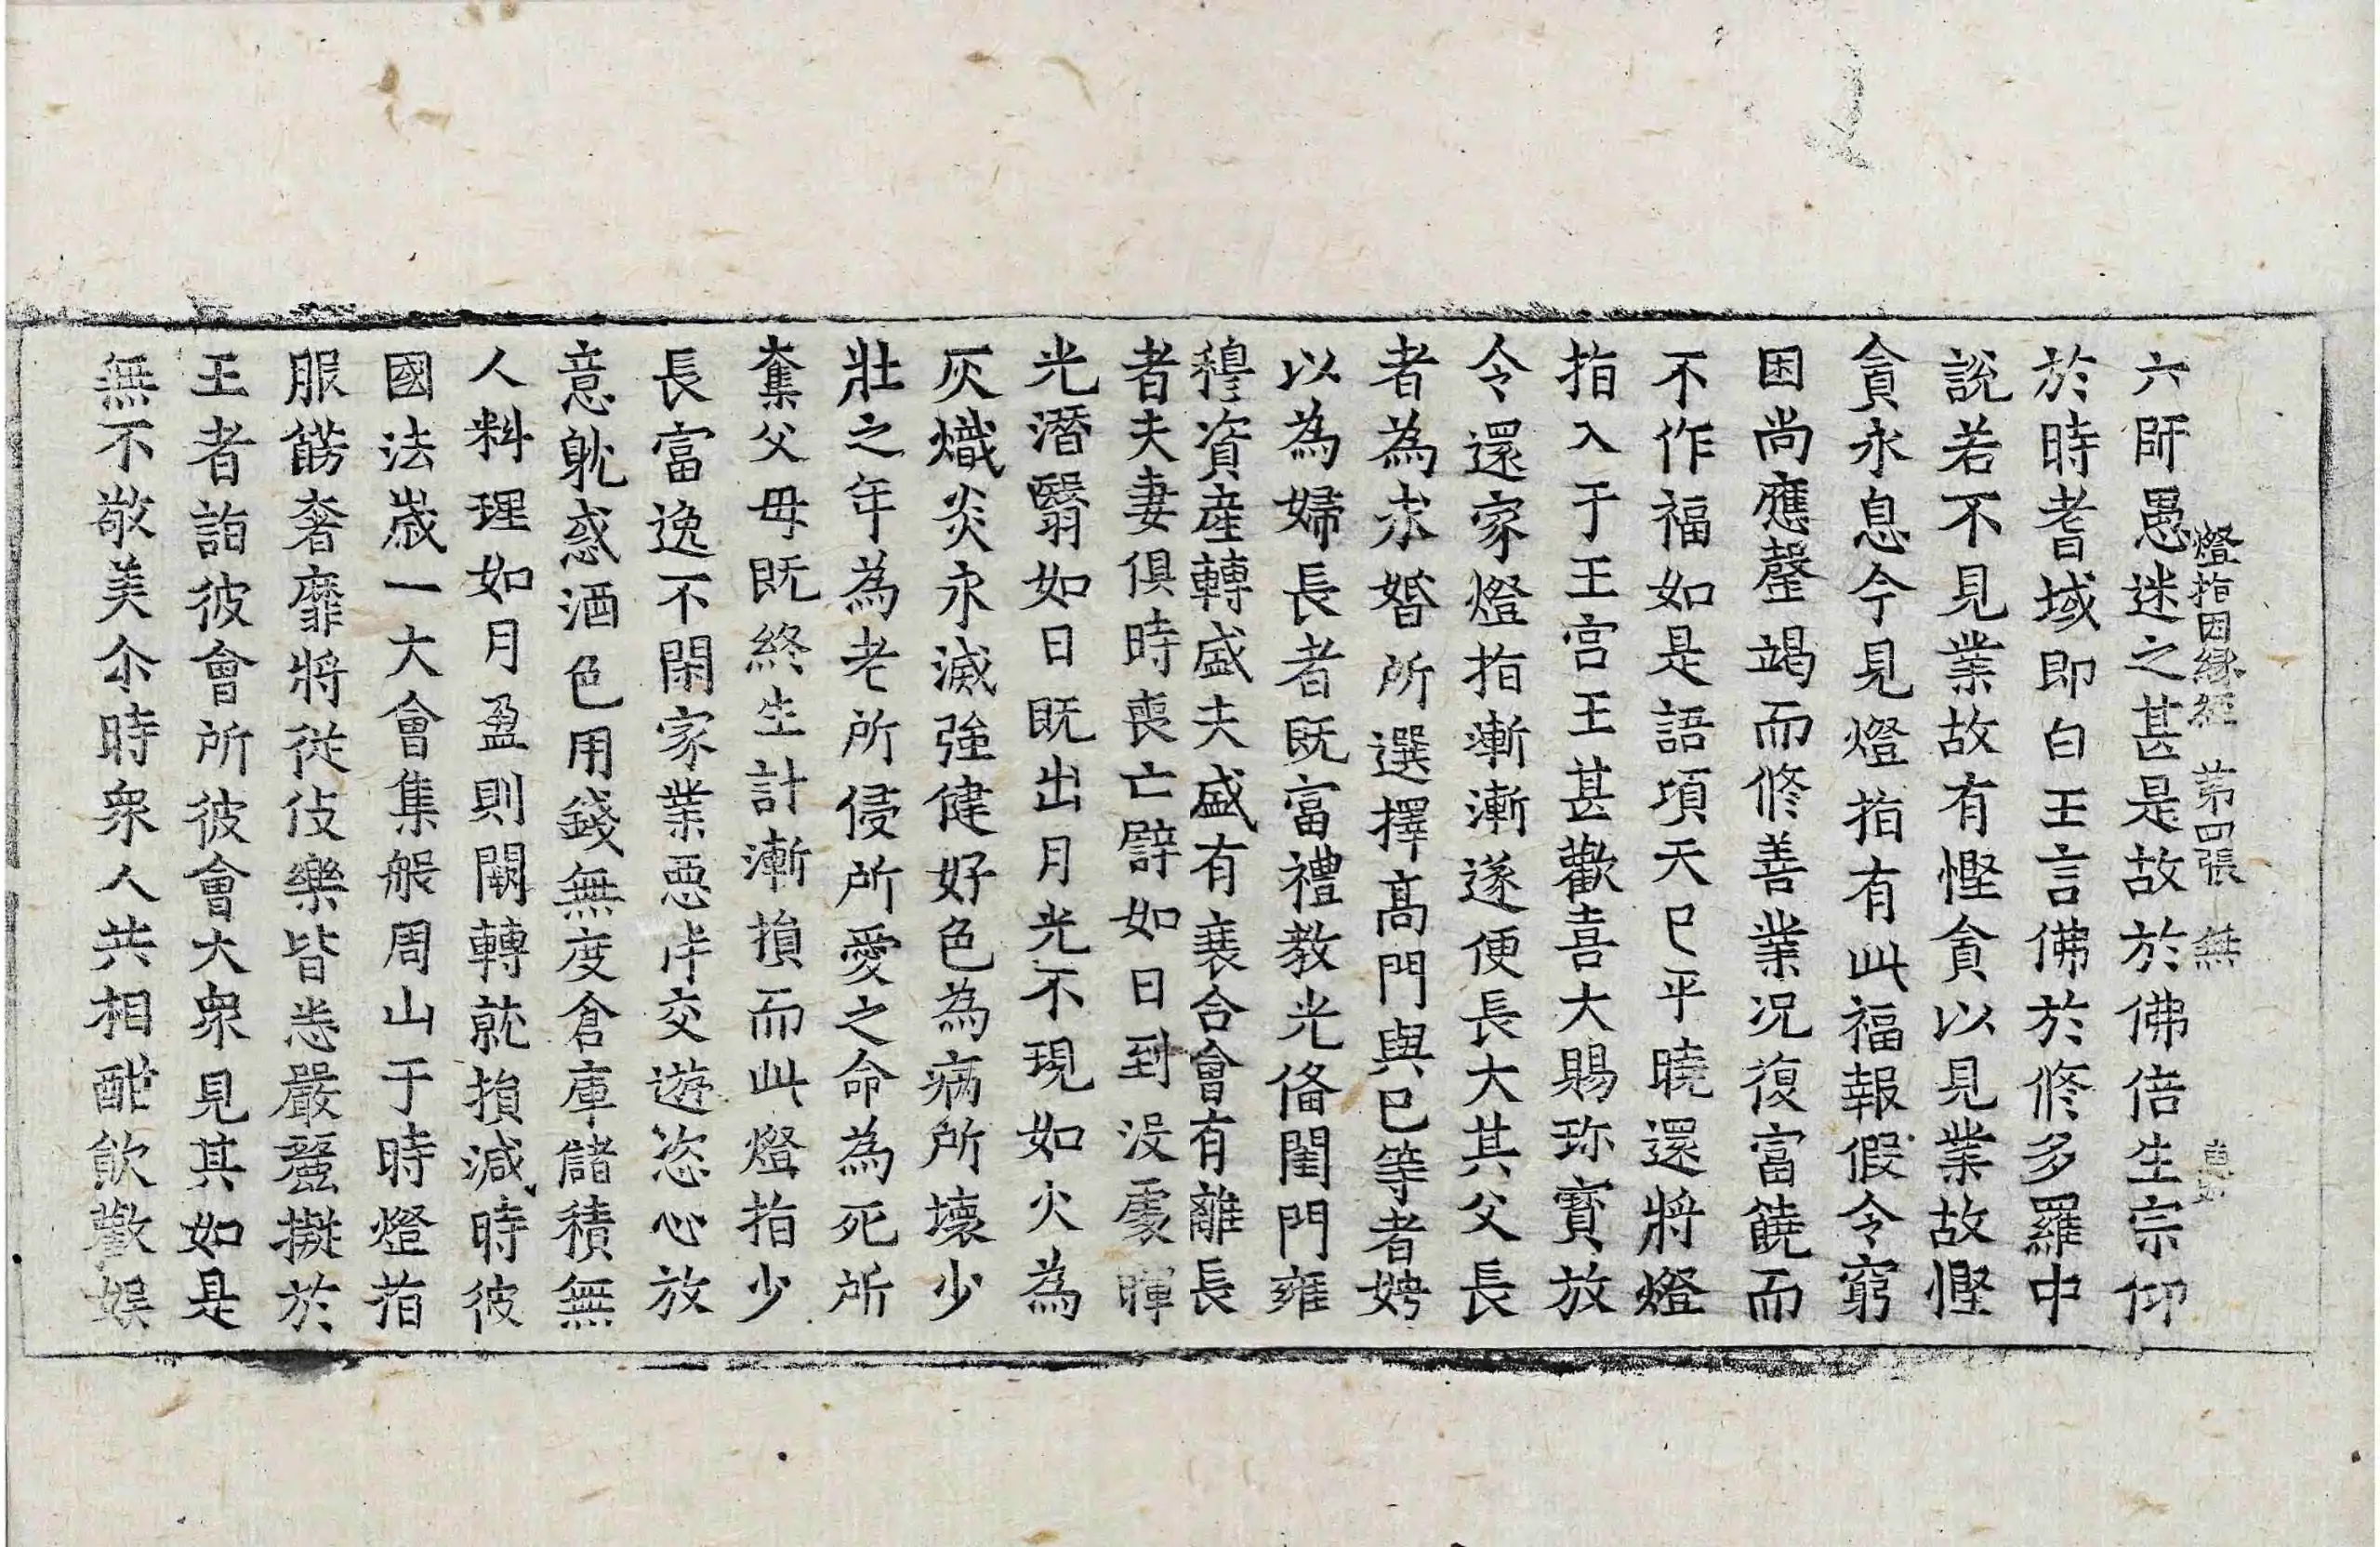 燈指因緣經 苐四張 無
六師愚迷之甚是故於佛倍生宗仰
於時耆域即白王言佛於修多羅中
說若不見業故有慳貪以見業故慳
貪永息今見燈指有此福報假令窮
困尚應罄竭而修善業况復富饒而
不作福如是語頃天已平曉還將燈
指入于王宮王甚歡喜大賜珎寶放
令還家燈指漸漸遂便長大其父長
者為求婚所選擇高門與已等者娉
以為婦長者既富禮教光俻閨門雍
穆資産轉盛夫盛有衰合會有離長
者夫妻俱時喪亡譬如日到没處暉
光潛翳如日既出月光不現如火為
灰熾炎永滅強健好色為病所壞少
壯之年為老所侵所愛之命為死所
奪父母既終生計漸損而此燈指少
長富逸不閑家業惡伴交遊恣心放
意躭惑酒色用錢無度倉庫儲積無
人料理如月盈則闕轉就損減時彼
國法歲一大會集般周山于時燈指
服餝奢靡將從伎樂皆悉嚴麗擬於
王者詣彼會所彼會大衆見其如是
無不敬美尒時衆人共相酣飲歡娱